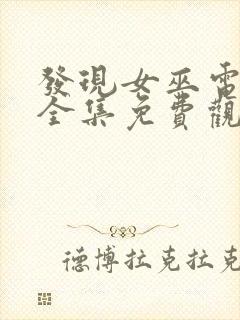 發現女巫電
全集免費觀
德博拉克拉克